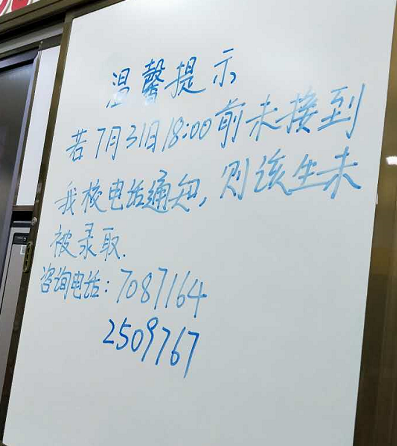 温馨提示
若7月31日18:00前未接到
我校电话通知,则该生未
被录取.
咨询电话:7087164
2509767